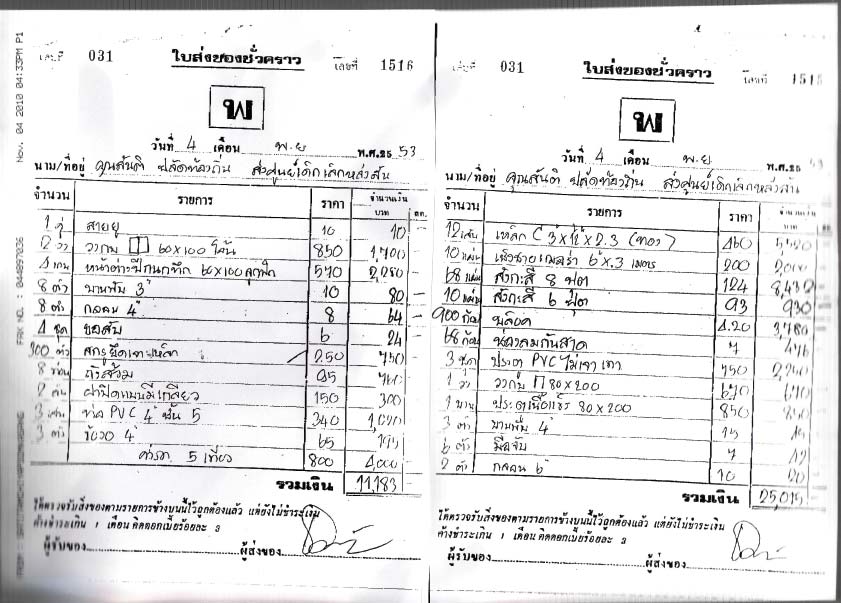 Nov. 04 2010 04:33PM P1
FAX NO. : 044897036
เล่มที่ 031
ใบส่งของชั่วคราว
เลขที่ 1516
พ
วันที่ 4 เดือน พ.ย พ.ศ.25 53
นาม/ที่อยู่ คุณสันติ ปลัดท้องถิ่น ส่งศูนย์เด็กเล็กหล่งสัน
จำนวน รายการ ราคา จำนวนเงิน
บาท สต.
1 คู่ สายยู 10 10
2 วง วงกบ 60x100 850 1,700
4 หน้าต่างปีกนกทึก 60x100 570 2,280
8 ตัว บานพับ 3" 10 80
8 ตัว กลอน 4" 8 64
4 ชุด ขอสับ 6 24
300 ตัว สกรูยึด 250 750
8 ถังส้วม 95 760
2 ฝาปิดแบบมีเกลียว 150 300
3 เส้น ท่อ PVC 4" ชั้น 5 340 1,020
3 ตัว ข้องอ 4" 65 195
ค่ารถ 5 เที่ยว 800 4,000
รวมเงิน 11,183
ได้ตรวจรับสิ่งของตามรายการข้างบนนี้ไว้ถูกต้องแล้ว แต่ยังไม่ชำระเงิน
ค้างชำระเกิน 1 เดือน คิดดอกเบี้ยร้อยละ 3
ผู้รับของ ผู้ส่งของ
เล่มที่ 031
ใบส่งของชั่วคราว
เลขที่ 1515
พ
วันที่ 4 เดือน พ.ย พ.ศ.25 53
นาม/ที่อยู่ คุณสันติ ปลัดท้องถิ่น ส่งศูนย์เด็กเล็กหล่งสัน
จำนวน รายการ ราคา จำนวนเงิน
บาท
12 เส้น เหล็ก C 3"x1½"x2.3 460 5,520
10 แผ่น 6"x.3 เมตร 200 2,000
68 แผ่น สังกะสี 8 ฟุต 124 8,432
10 แผ่น สังกะสี 6 ฟุต 93 930
900 ก้อน บล็อค 4.20 3,780
68 ก้อน ช่องลมกันสาด 7 476
3 ชุด ประตู PVC ไม่เจาะ 750 2,250
1 วง วงกบ 80x200 670 670
1 บาน ประตู 80x200 850 850
3 ตัว บานพับ 4" 15 45
6 ตัว มือจับ 7 42
2 ตัว กลอน 6" 10 20
รวมเงิน 25,015
ได้ตรวจรับสิ่งของตามรายการข้างบนนี้ไว้ถูกต้องแล้ว แต่ยังไม่ชำระเงิน
ค้างชำระเกิน 1 เดือน คิดดอกเบี้ยร้อยละ 3
ผู้รับของ ผู้ส่งของ